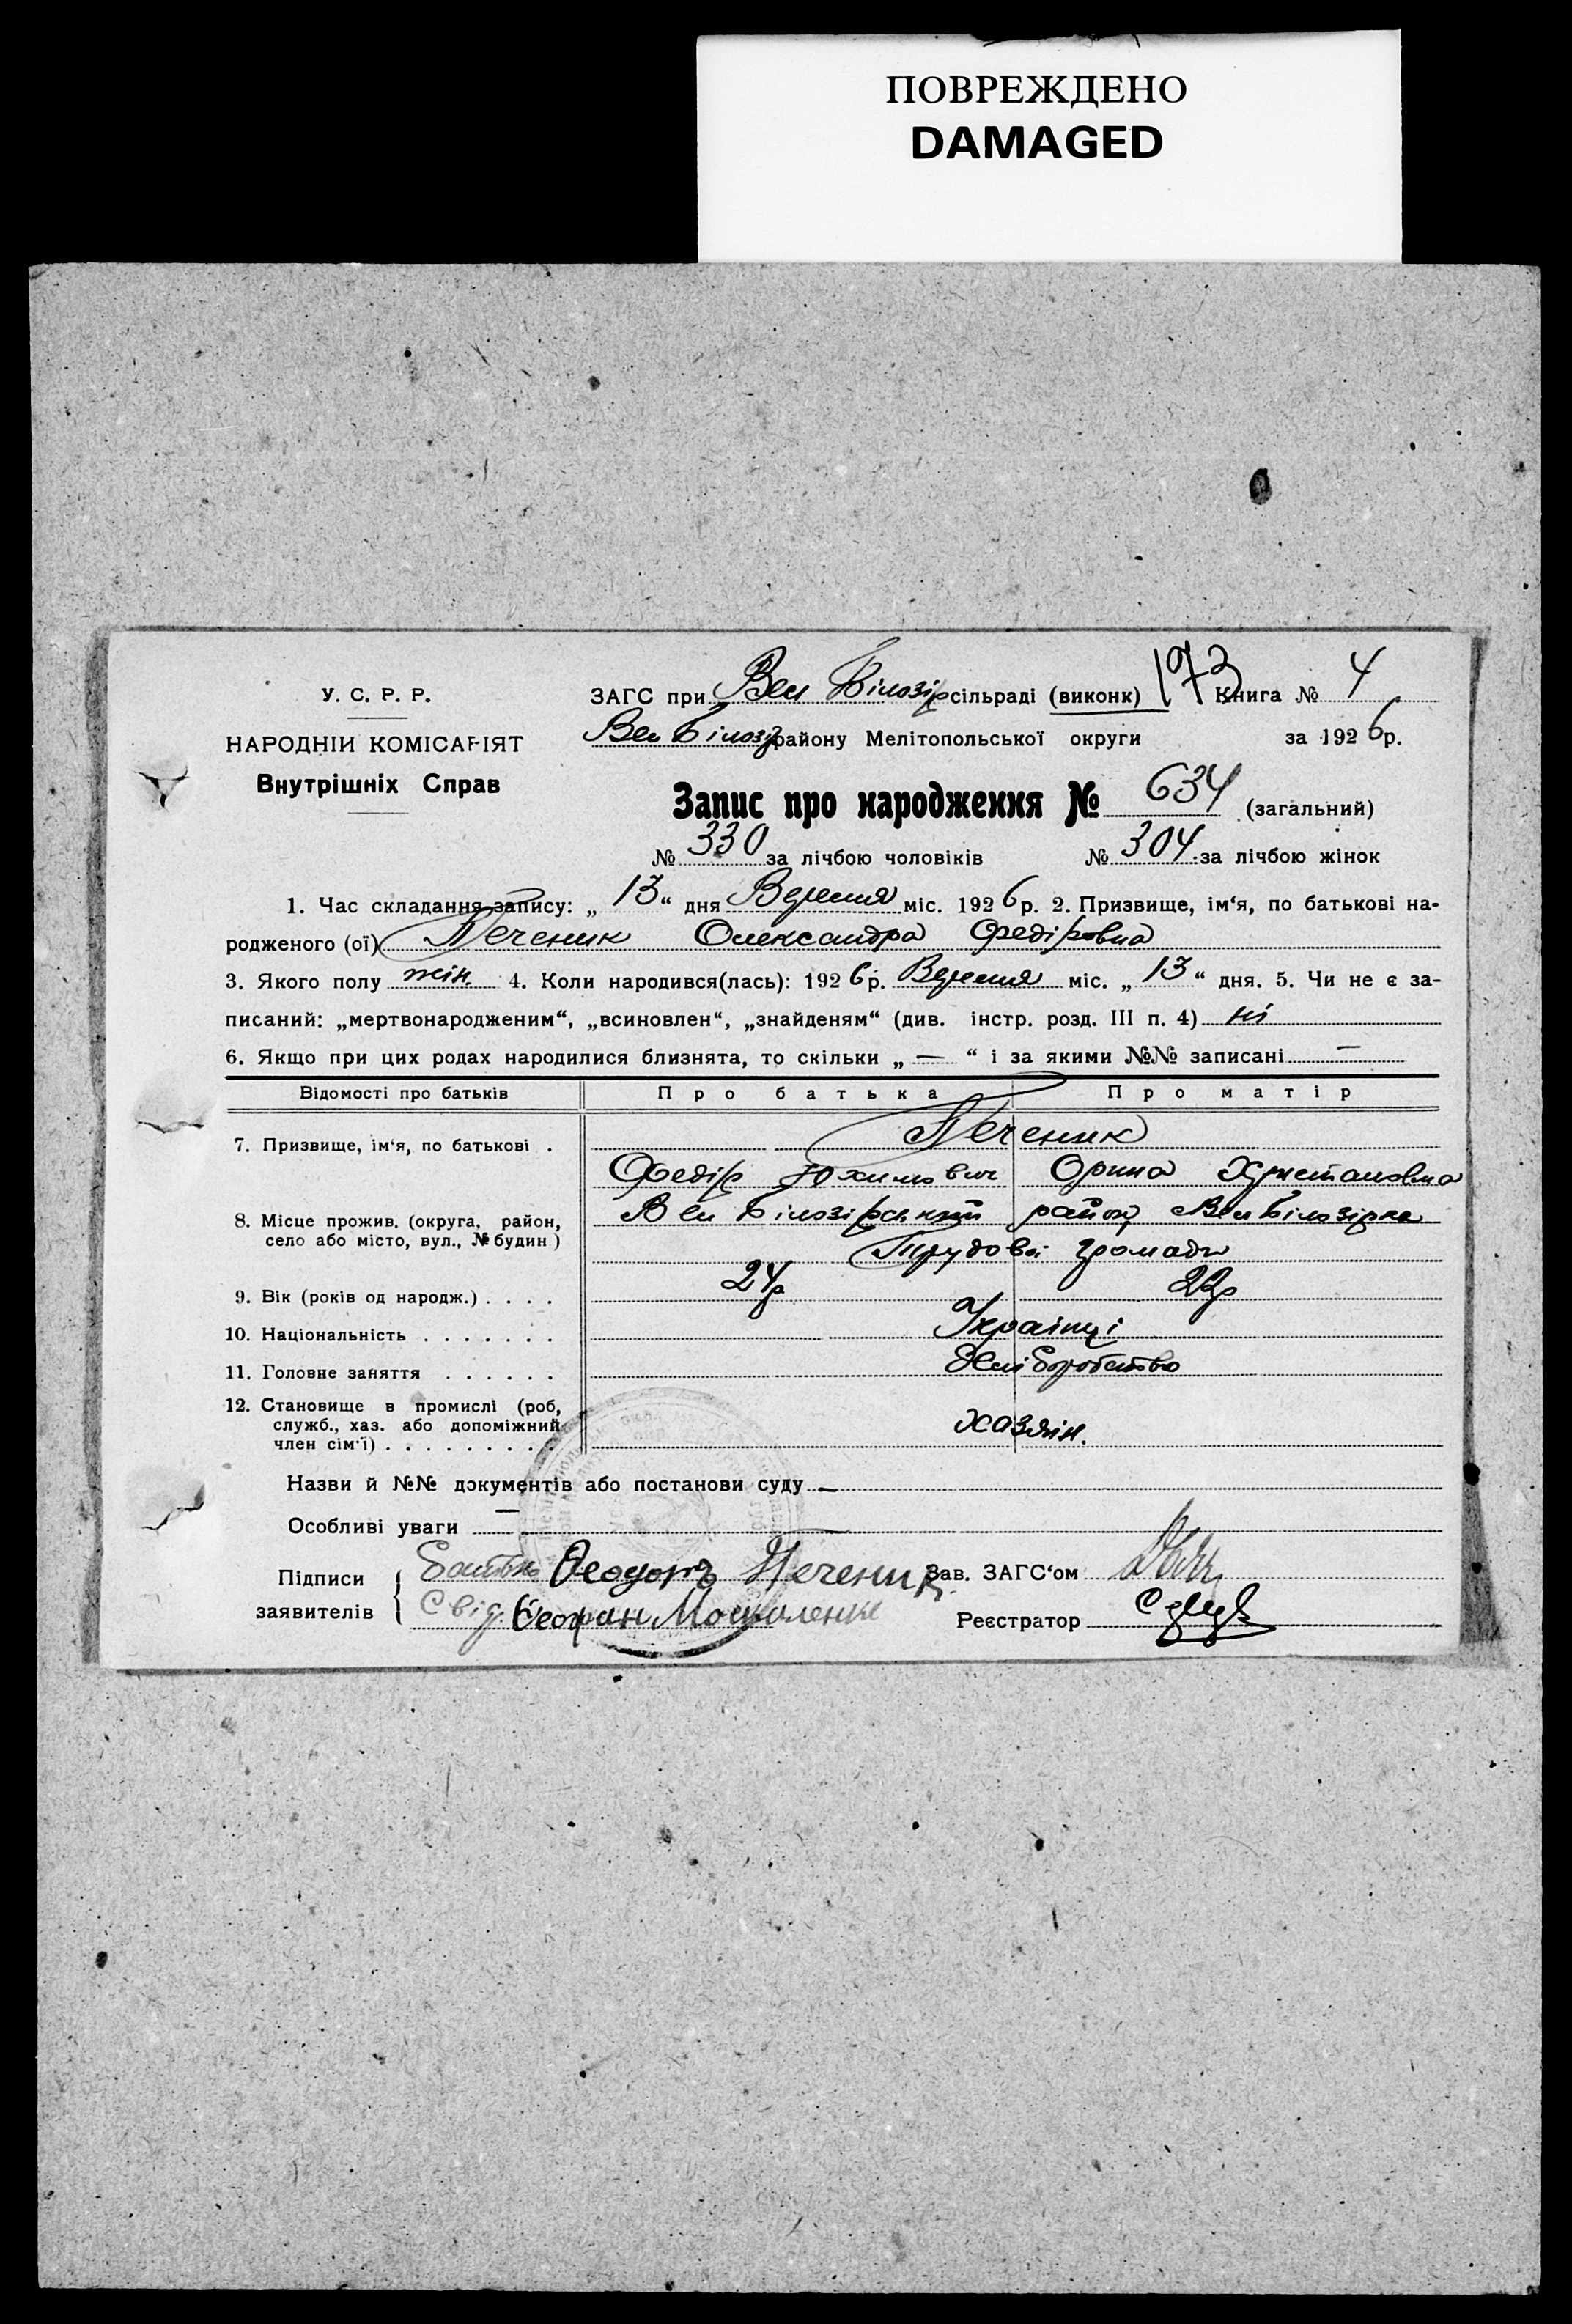 ПОВРЕЖДЕНО
DAMAGED
У. С. Р. Р.
НАРОДНІЙ КОМІСАРІЯТ
Внутрішніх Справ
ЗАГС при Вел Білозір сільраді (виконк) 173 Книга № 4
Вел Білозір району Мелітопольської округи за 1926 р.
Запис про народження № 634 (загальний)
№ 330 за лічбою чоловіків № 304 за лічбою жінок
1. Час складання запису: „ 13 “ дня Вересня міс. 1926 р. 2. Призвище, ім'я, по батькові на-
родженого (ої) Печеник Олександра Федіровна
3. Якого полу жін. 4. Коли народився(лась): 1926 р. Вересня міс. „ 13 “ дня. 5. Чи не є за-
писаний: „мертвонародженим“, „всиновлен“, „знайденям“ (див. інстр. розд. III п. 4) ні
6. Якщо при цих родах народилися близнята, то скільки „ — “ і за якими №№ записані —
Відомості про батьків Про батька Про матір
7. Призвище, ім'я, по батькові . Печеник
Федір Юхимович Орина Христановна
8. Місце прожив. (округа, район, село або місто, вул., № будин) Вел Білозірський район, Вел Білозірка
Трудової громади
9. Вік (років од народж.) . . . . 24р 22р
10. Національність . . . . . . . Українці
11. Головне заняття . . . . . . Хліборобство
12. Становище в промислі (роб,
служб., хаз. або допоміжний
член сім'ї) . . . . . . . . . хазяін.
Назви й №№ документів або постанови суду —
Особливі уваги —
Підписи заявителів Батько Феодоръ Печеник Зав. ЗАГС'ом
Свід. Феофан Москаленко Реєстратор